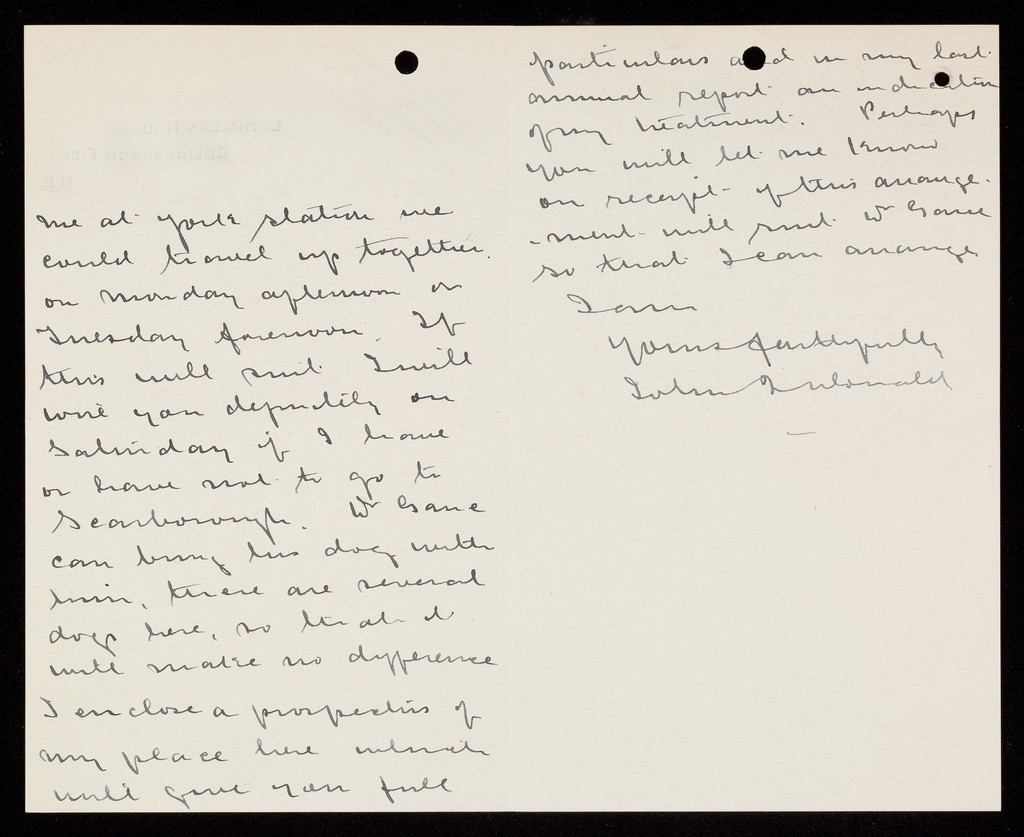 me at York station we
could travel up together.
on Monday afternoon or
Tuesday forenoon. If
this will suit I will
wire you definitely on
Saturday if I have
or have not to go to
Scarborough. Mr Game
can bring his dog with
him, there are several
dogs here, so that it
will make no difference
I enclose a prospectus of
my place here which
will give you full
particulars and in my last
annual report an indication
of my treatment. Perhaps
you will let me know
on receipt if this arrange-
-ment will suit Mr Game
so that I can arrange
I am
Yours faithfully
John Q Donald
LATHALLAN HOUSE,
COLINSBURGH FIFE
N.B.